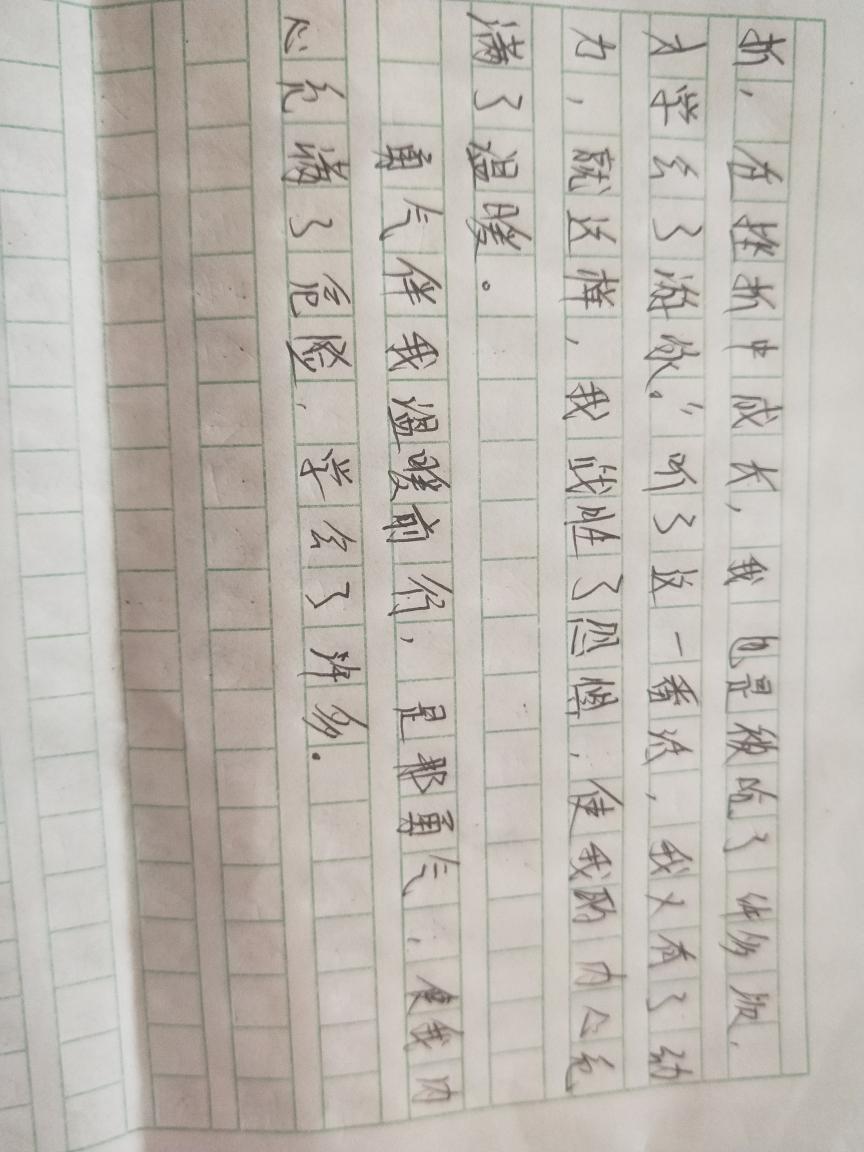 折，在挫折中成长，我也是被吃了许多板，
才学会了游泳。”听了这一番话，我又有了动
力，就这样，我战胜了恐惧，使我的内心充
满了温暖。
勇气伴我温暖前行，是那勇气，使我内
心充满了危险，学会了许多。